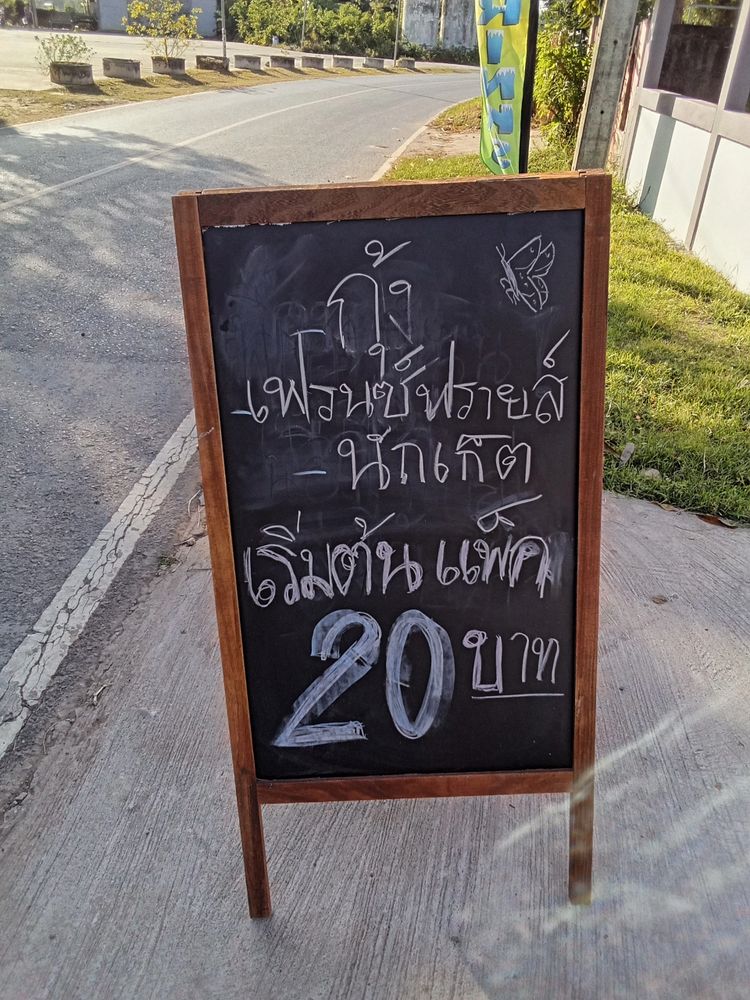 กุ้ง
-เฟรนซ์ฟรายส์
- นักเก็ต
เริ่มต้น แพ็ค
20 บาท